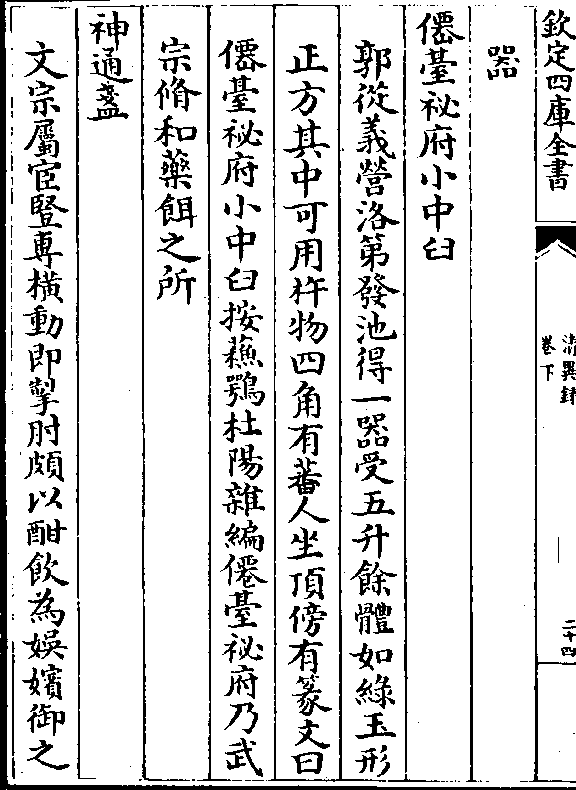 欽定四庫全書
清異錄
卷下
二十四
器
僊臺祕府小中臼
郭從義營洛第發池得一器受五升餘體如綠玉形
正方其中可用杵物四角有蕃人坐頂傍有篆文曰
僊臺祕府小中臼按蘓鶚杜陽雜編僊臺祕府乃武
宗脩和藥餌之所
神通盞
文宗屬宦豎専横動即掣肘頗以酣飲為娛嬪御之